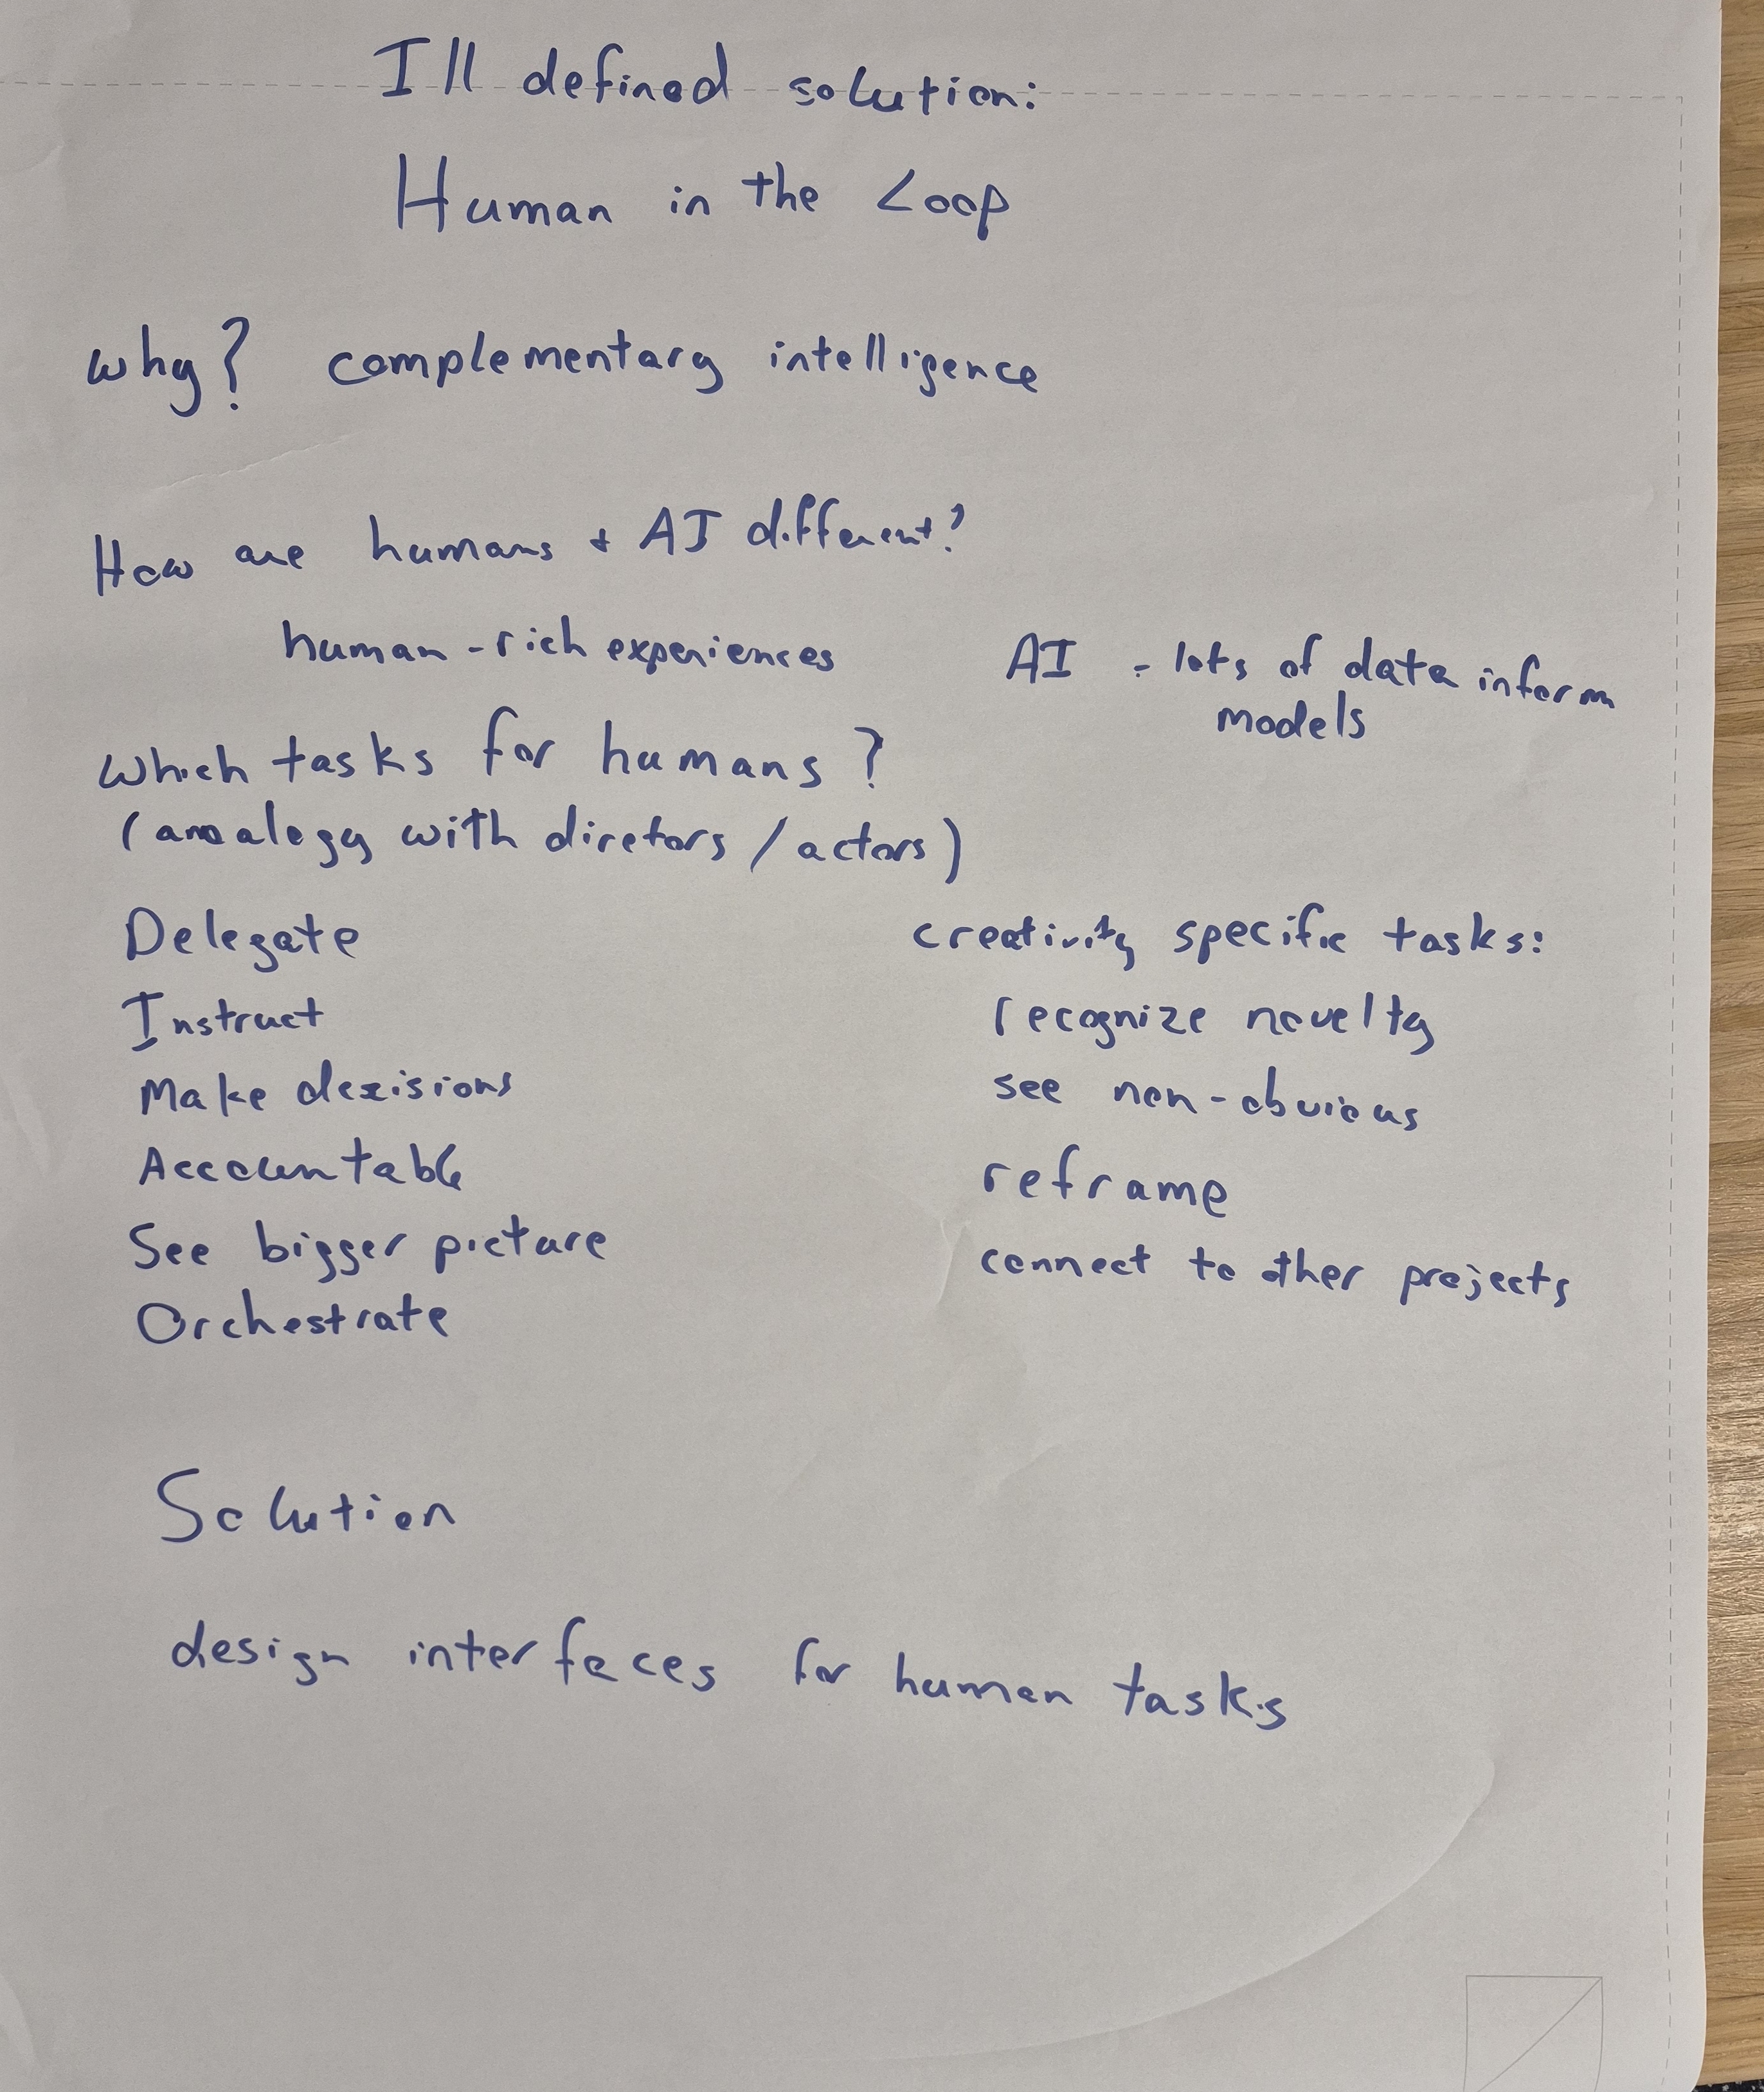 Ill defined solution:
Human in the Loop
why? complementary intelligence
How are humans + AI different?
human - rich experiences
AI - lots of data inform
models
Which tasks for humans?
(anaalogy with diretors / actors)
Delegate
Instruct
Make dezisions
Accountable
See bigger picture
Orchestrate
creativity specific tasks:
recognize novelty
see non-obvious
reframe
connect to other projects
Solution
design interfaces for human tasks